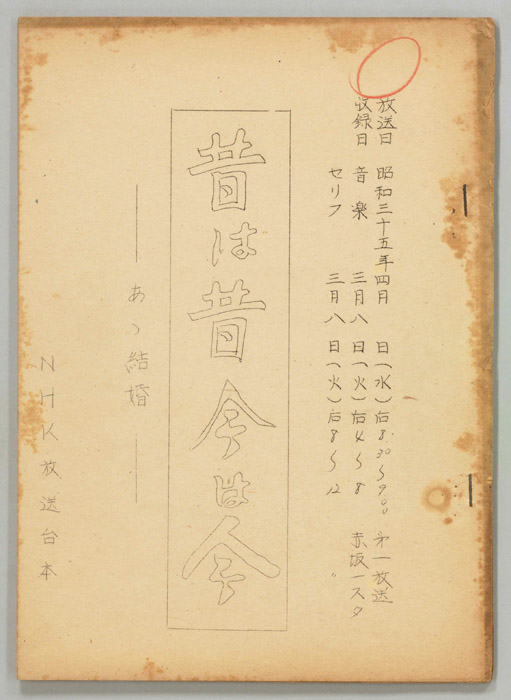 放送日 昭和三十五年四月 日(水)后8.30〜9.00 第一放送
収録日 音楽 三月八日(火)后4〜8 赤坂一スタ
セリフ 三月八日(火)后8〜12 〃
昔は昔 今は今
── あゝ結婚 ──
NHK放送台本